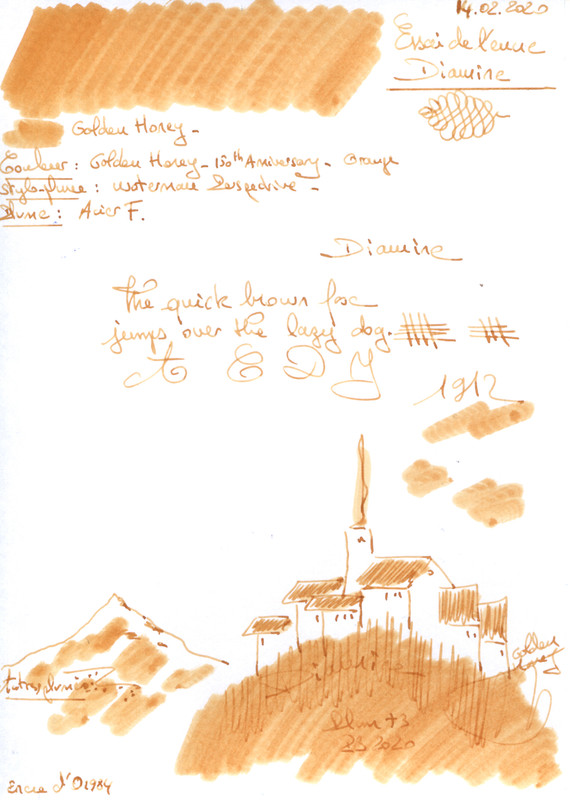 14.02.2020
Essai de l'encre
Diamine
Golden Honey -
Couleur : Golden Honey - 150th Anniversary - Orange
Stylo-plume : Waterman Perspective -
Plume : Acier F.
Diamine
The quick brown fox
jumps over the lazy dog.
A E D Y
1912
Diamine
Golden
Honey
23 2020
Encre d'O1984